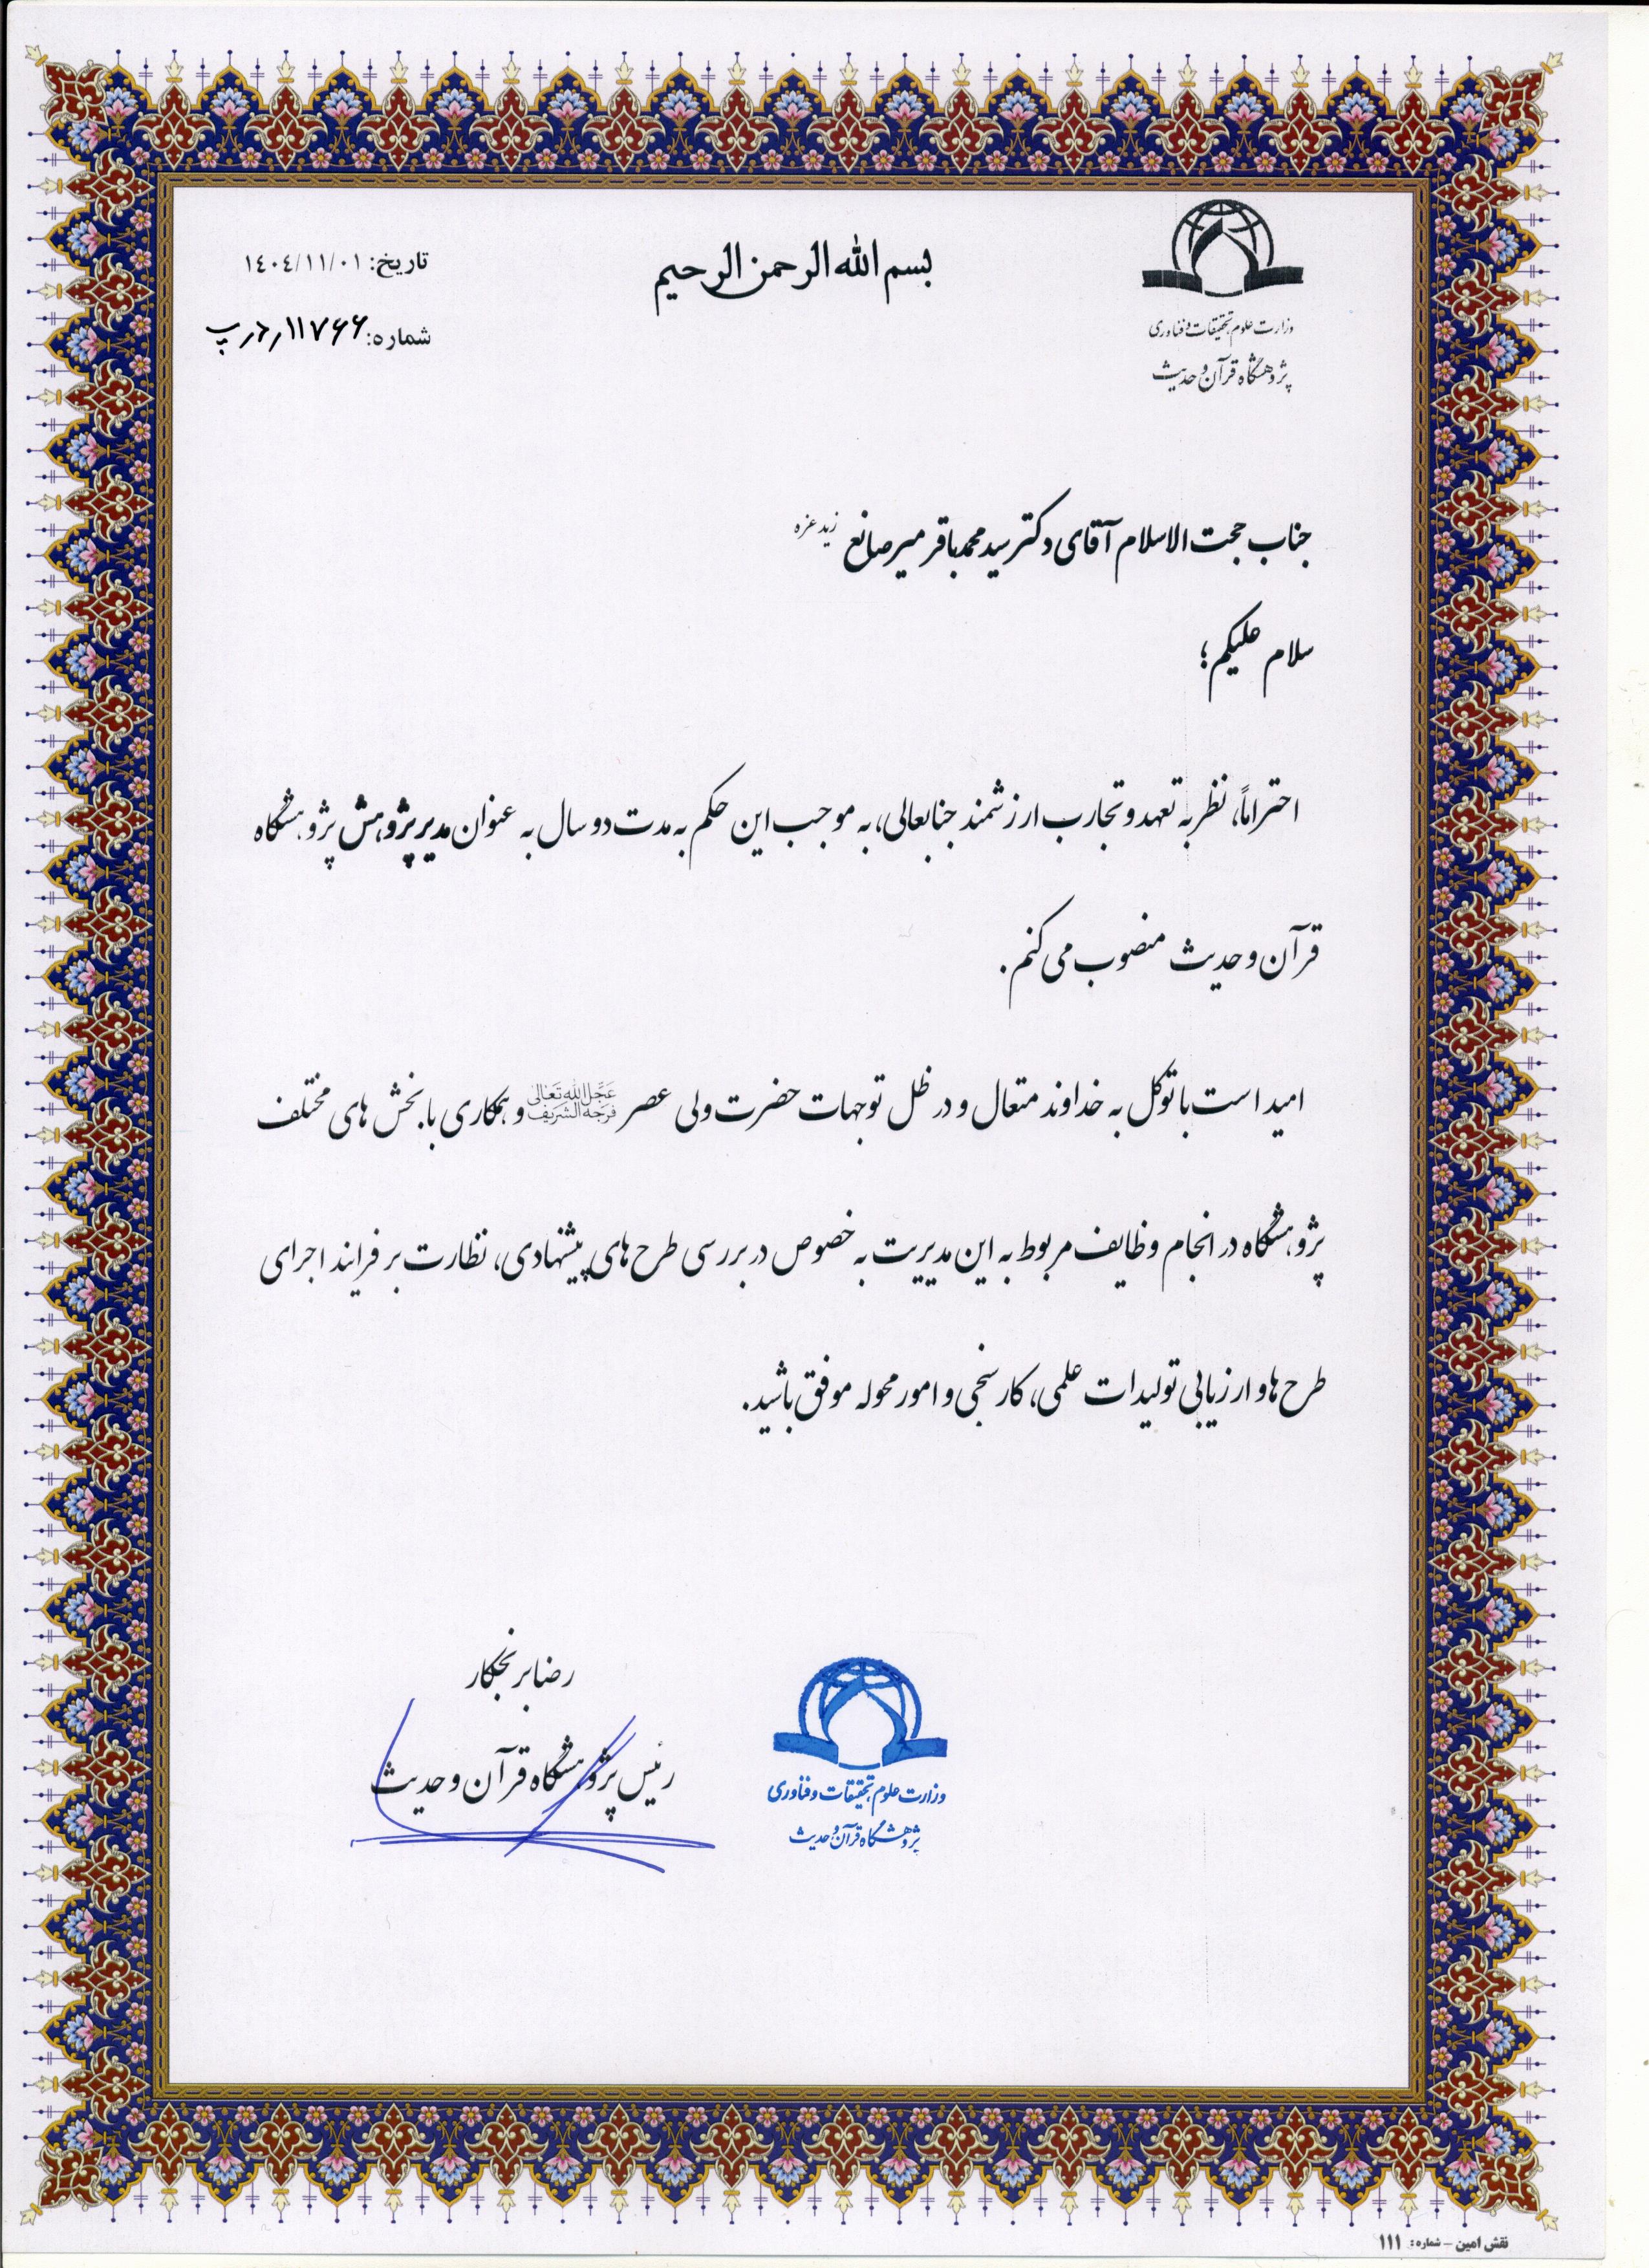 بسم الله الرحمن الرحیم
وزارت علوم، تحقیقات و فناوری
پژوهشگاه قرآن و حدیث
تاریخ: ۱۴۰۴/۱۱/۰۱
شماره: ۱۱۷۶۶
جناب حجت الاسلام آقای دکتر سید محمد باقر میرصانع زید عزه
سلام علیکم؛
احتراماً، نظر به تعهد و تجارب ارزشمند جنابعالی، به موجب این حکم به مدت دو سال به عنوان مدیر پژوهش پژوهشگاه
قرآن و حدیث منصوب می کنم.
امید است با توکل به خداوند متعال و در ظل توجهات حضرت ولی عصر عَجَّلَ اللهُ تَعالی فَرَجَهُ الشَّریف و همکاری با بخش های مختلف
پژوهشگاه در انجام وظایف مربوط به این مدیریت به خصوص در بررسی طرح های پیشنهادی، نظارت بر فرایند اجرای
طرح ها و ارزیابی تولیدات علمی، کارسنجی و امور محوله موفق باشید.
رضا برنجکار
رئیس پژوهشگاه قرآن و حدیث
وزارت علوم، تحقیقات و فناوری
پژوهشگاه قرآن و حدیث
نقش امین – شماره: ۱۱۱